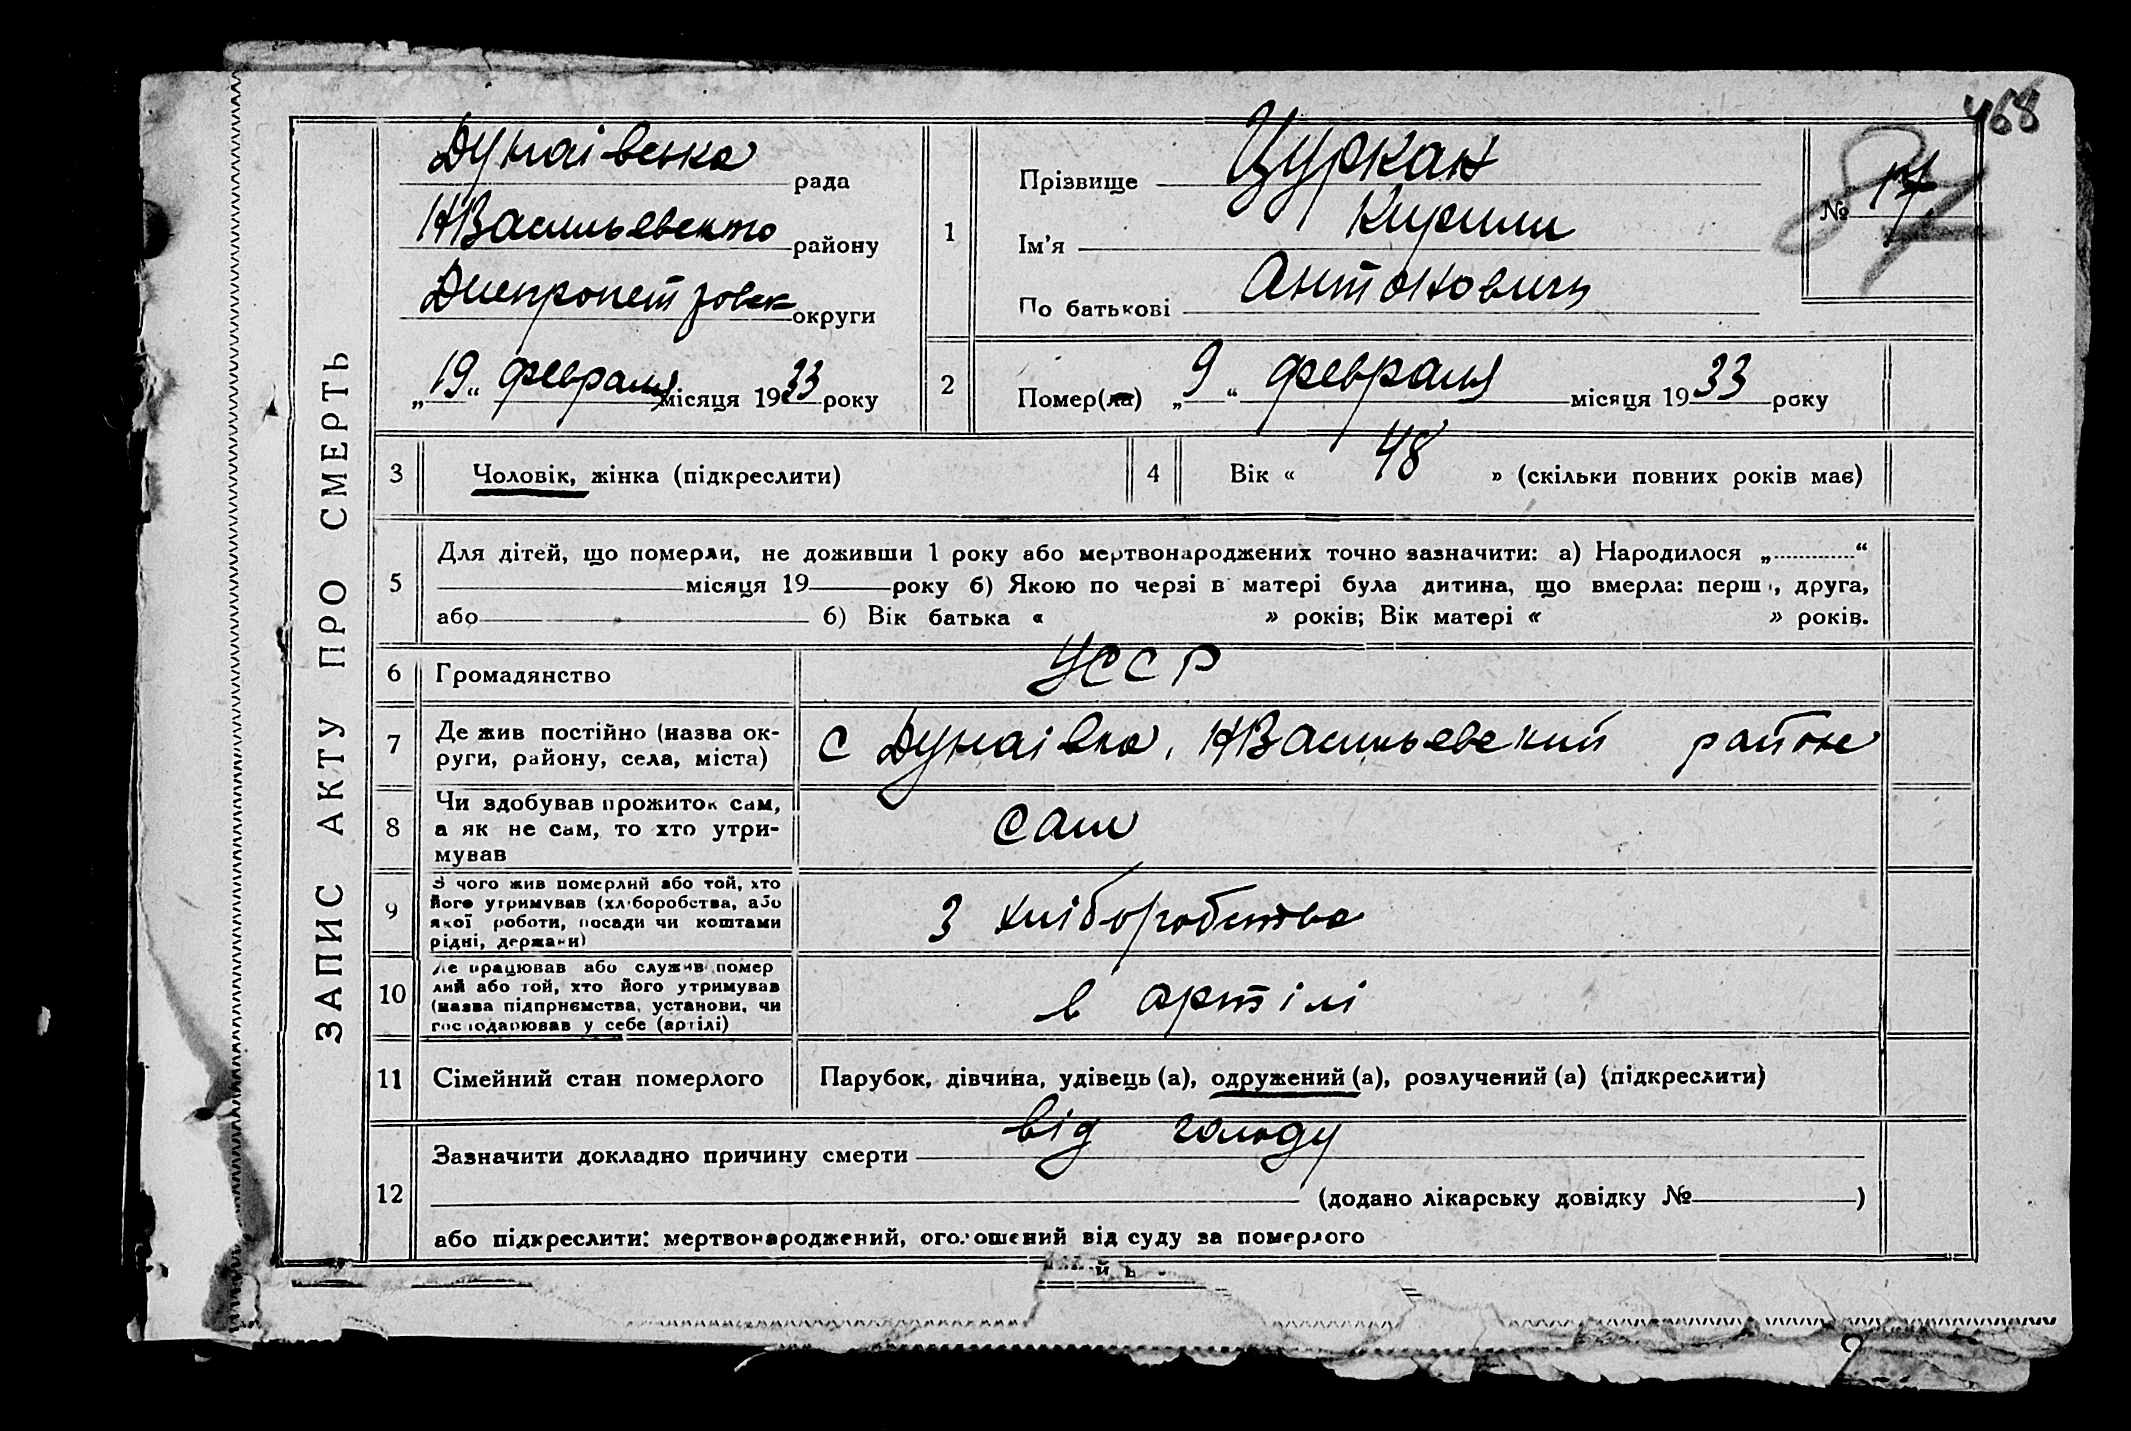 468
ЗАПИС АКТУ ПРО СМЕРТЬ
Дунаівська рада
НВасильевского району
Днепропетровск округи
„19“ февраля місяця 1933 року
1
Прізвище Цуркан
Ім'я Кирилл
По батькові Антонович
№ 17
2
Помер(ла) „9“ февраля місяця 1933 року
3 Чоловік, жінка (підкреслити)
4 Вік « 48 » (скільки повних років має)
5 Для дітей, що померли, не доживши 1 року або мертвонароджених точно зазначити: а) Народилося „............“
місяця 19 року б) Якою по черзі в матері була дитина, що вмерла: перша, друга,
або б) Вік батька « » років; Вік матері « » років.
6 Громадянство УССР
7 Де жив постійно (назва ок-
руги, району, села, міста)
с Дунаівка, НВасильевский район
8 Чи здобував прожиток сам,
а як не сам, то хто утри-
мував
сам
9 З чого жив померлий або той, хто
його утримував (хліборобства, або
якої роботи, посади чи коштами
рідні, держави)
З хліборобства
10 Де працював або служив помер
лий або той, хто його утримував
(назва підприємства, установи, чи
господарював у себе (артілі)
в артілі
11 Сімейний стан померлого Парубок, дівчина, удівець (а), одружений (а), розлучений (а) (підкреслити)
12 Зазначити докладно причину смерти від голоду
(додано лікарську довідку № )
або підкреслити: мертвонароджений, оголошений від суду за померлого